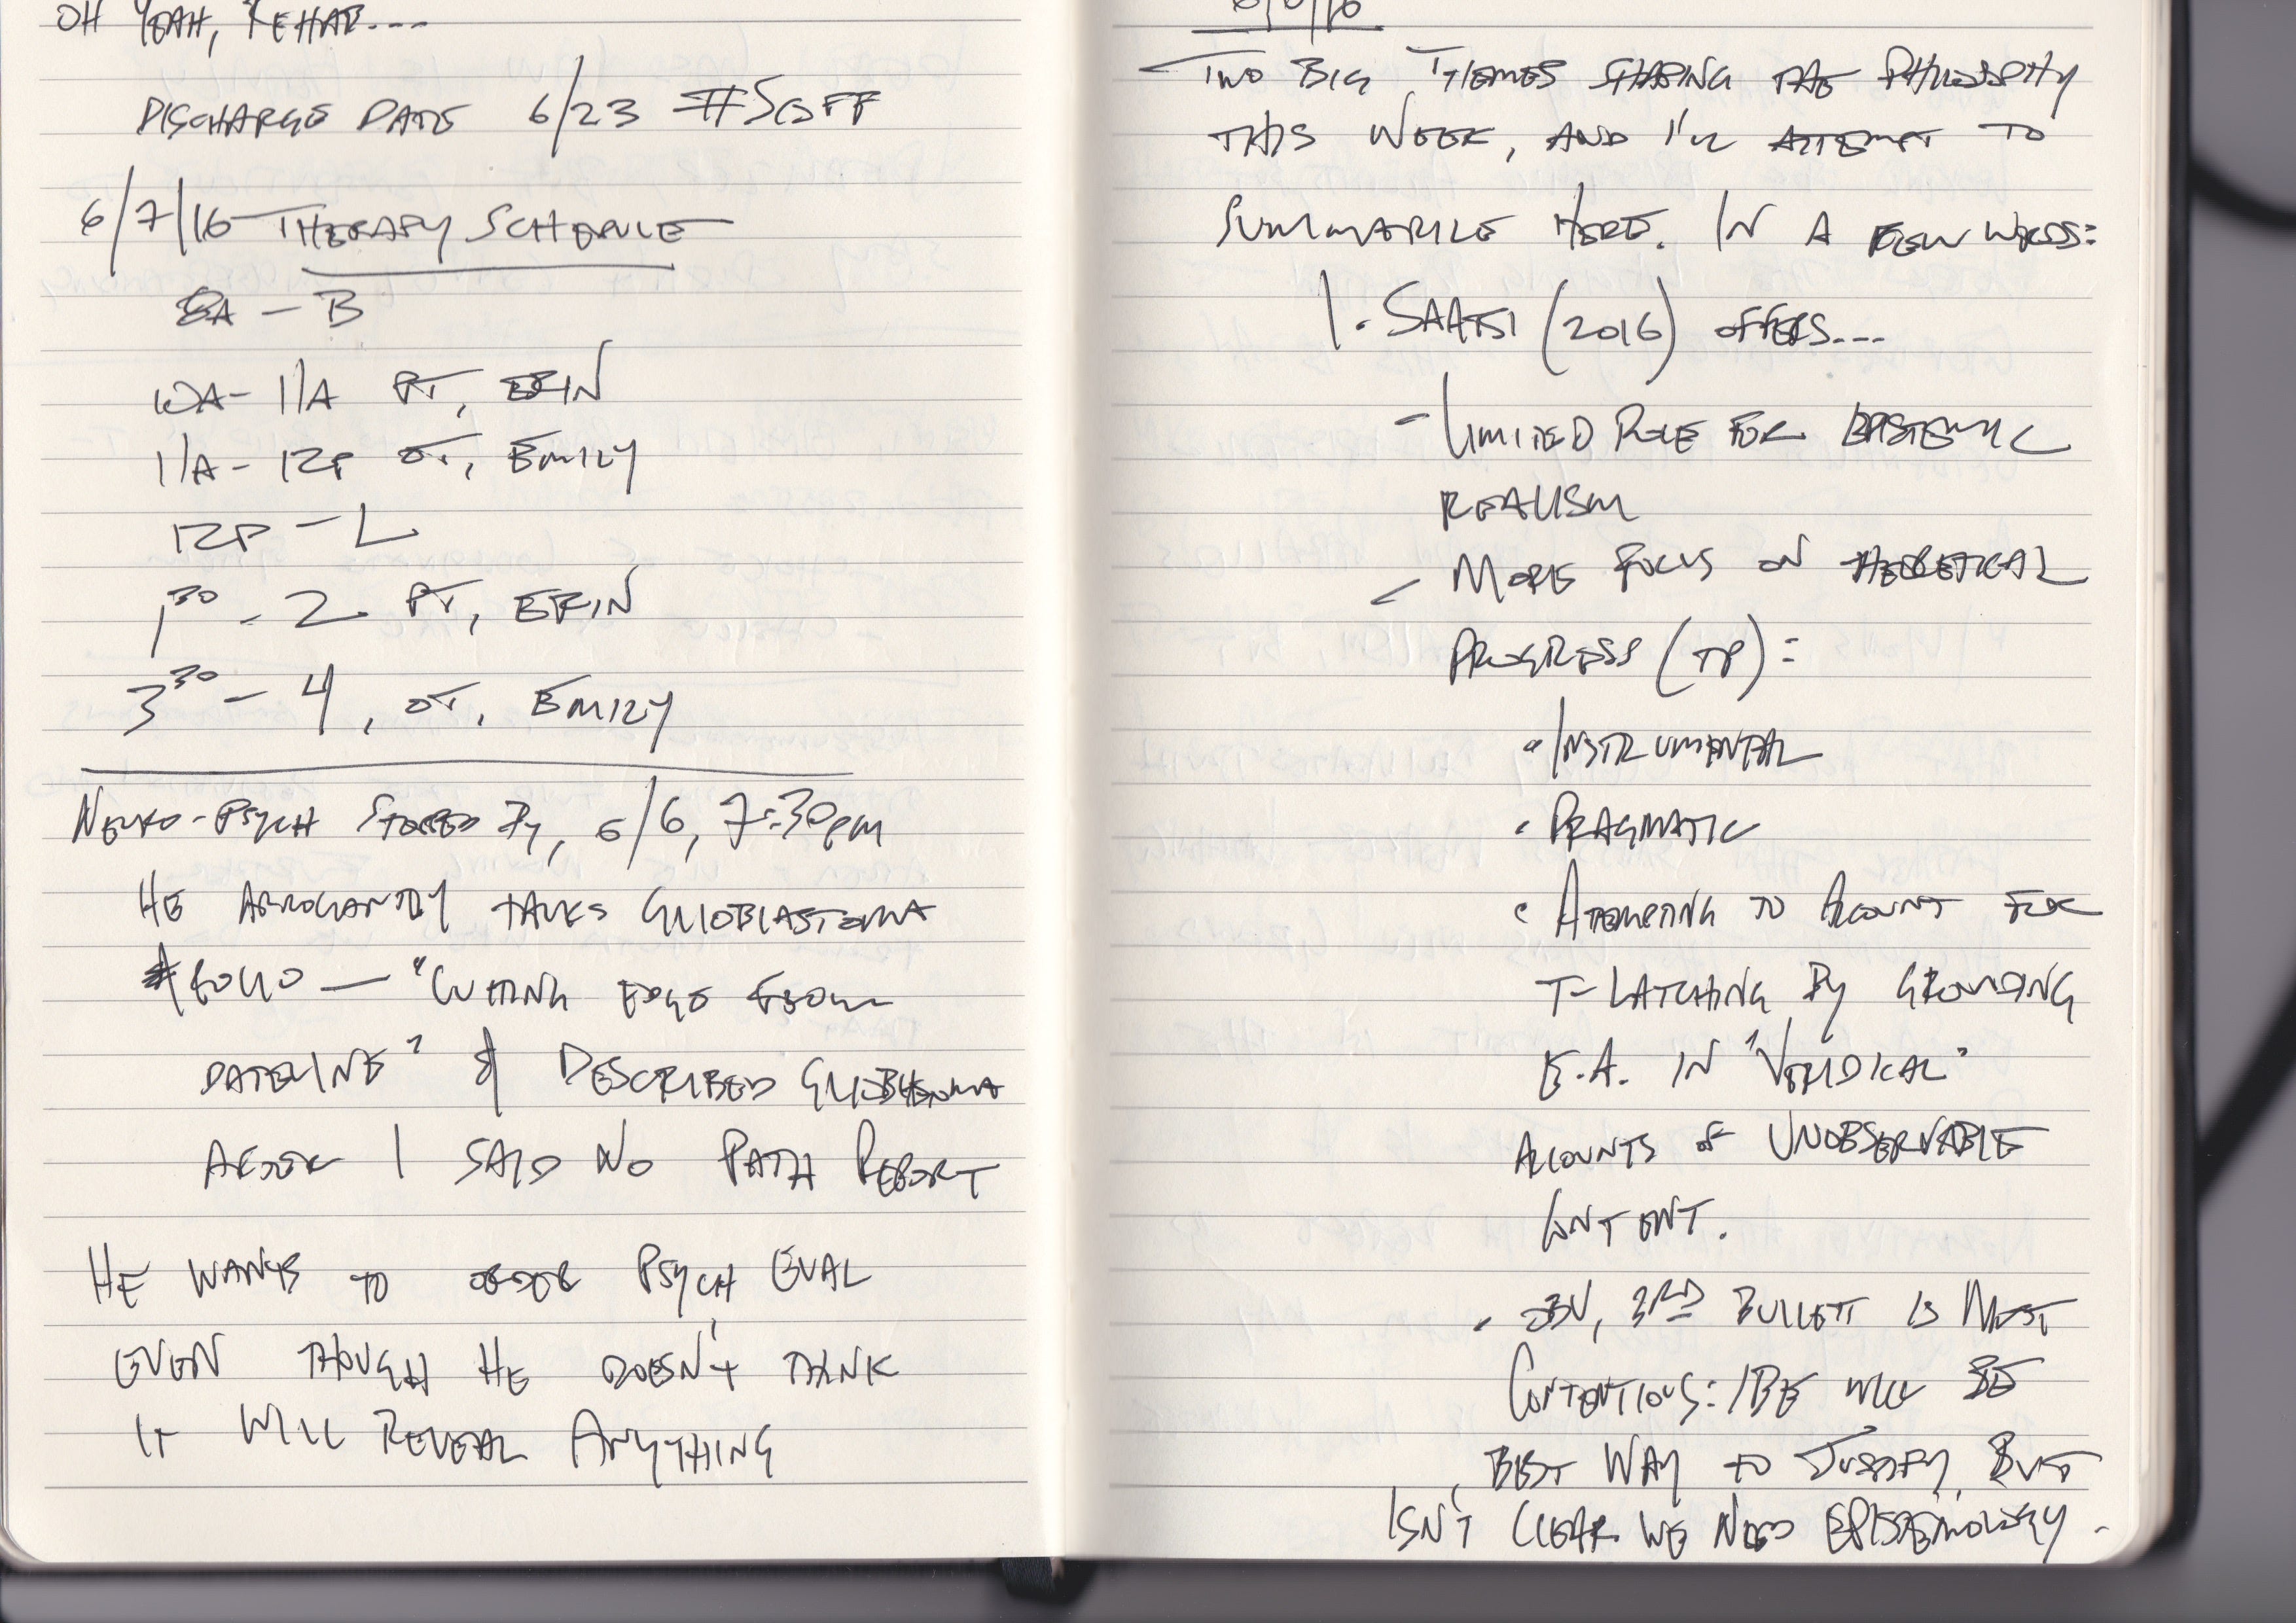 OH YEAH, REHAB....
DISCHARGE DATE 6/23 #SGFF
6/7/16 - THERAPY SCHEDULE
8A - B
10A - 11A PT, ERIN
11A - 12P OT, EMILY
12P - L
1 30 - 2 PT, ERIN
3 30 - 4, OT, EMILY
NEURO-PSYCH STOPPED BY, 6/6, 7:30pm
HE ARROGANTLY TALKS GLIOBLASTOMA
& POLIO — "CUTTING EDGE FROM
DATELINE" & DESCRIBED
AFTER I SAID NO PATH REPORT
HE WANTS TO ORDER PSYCH EVAL
EVEN THOUGH HE DOESN'T THINK
IT WILL REVEAL ANYTHING
- TWO BIG THEMES SHAPING THE PHILOSOPHY
THIS WEEK, AND I'LL ATTEMPT TO
SUMMARIZE HERE. IN A FEW WORDS:
1. SAATSI (2016) OFFERS....
- LIMITED ROLE FOR EPISTEMIC
REALISM
- MORE FOCUS ON THEORETICAL
PROGRESS (TP):
• INSTRUMENTAL
• PRAGMATIC
• ATTEMPTING TO ACCOUNT FOR
T-LATCHING BY GROUNDING
E.A. IN "VERIDICAL"
ACCOUNTS OF UNOBSERVABLE
CONTENT.
- OBV, 3RD BULLETT IS MOST
CONTENTIOUS: IBE WILL BE
BEST WAY TO JUSTIFY, BUT
ISN'T CLEAR WE NEED EPISTEMOLOGY.